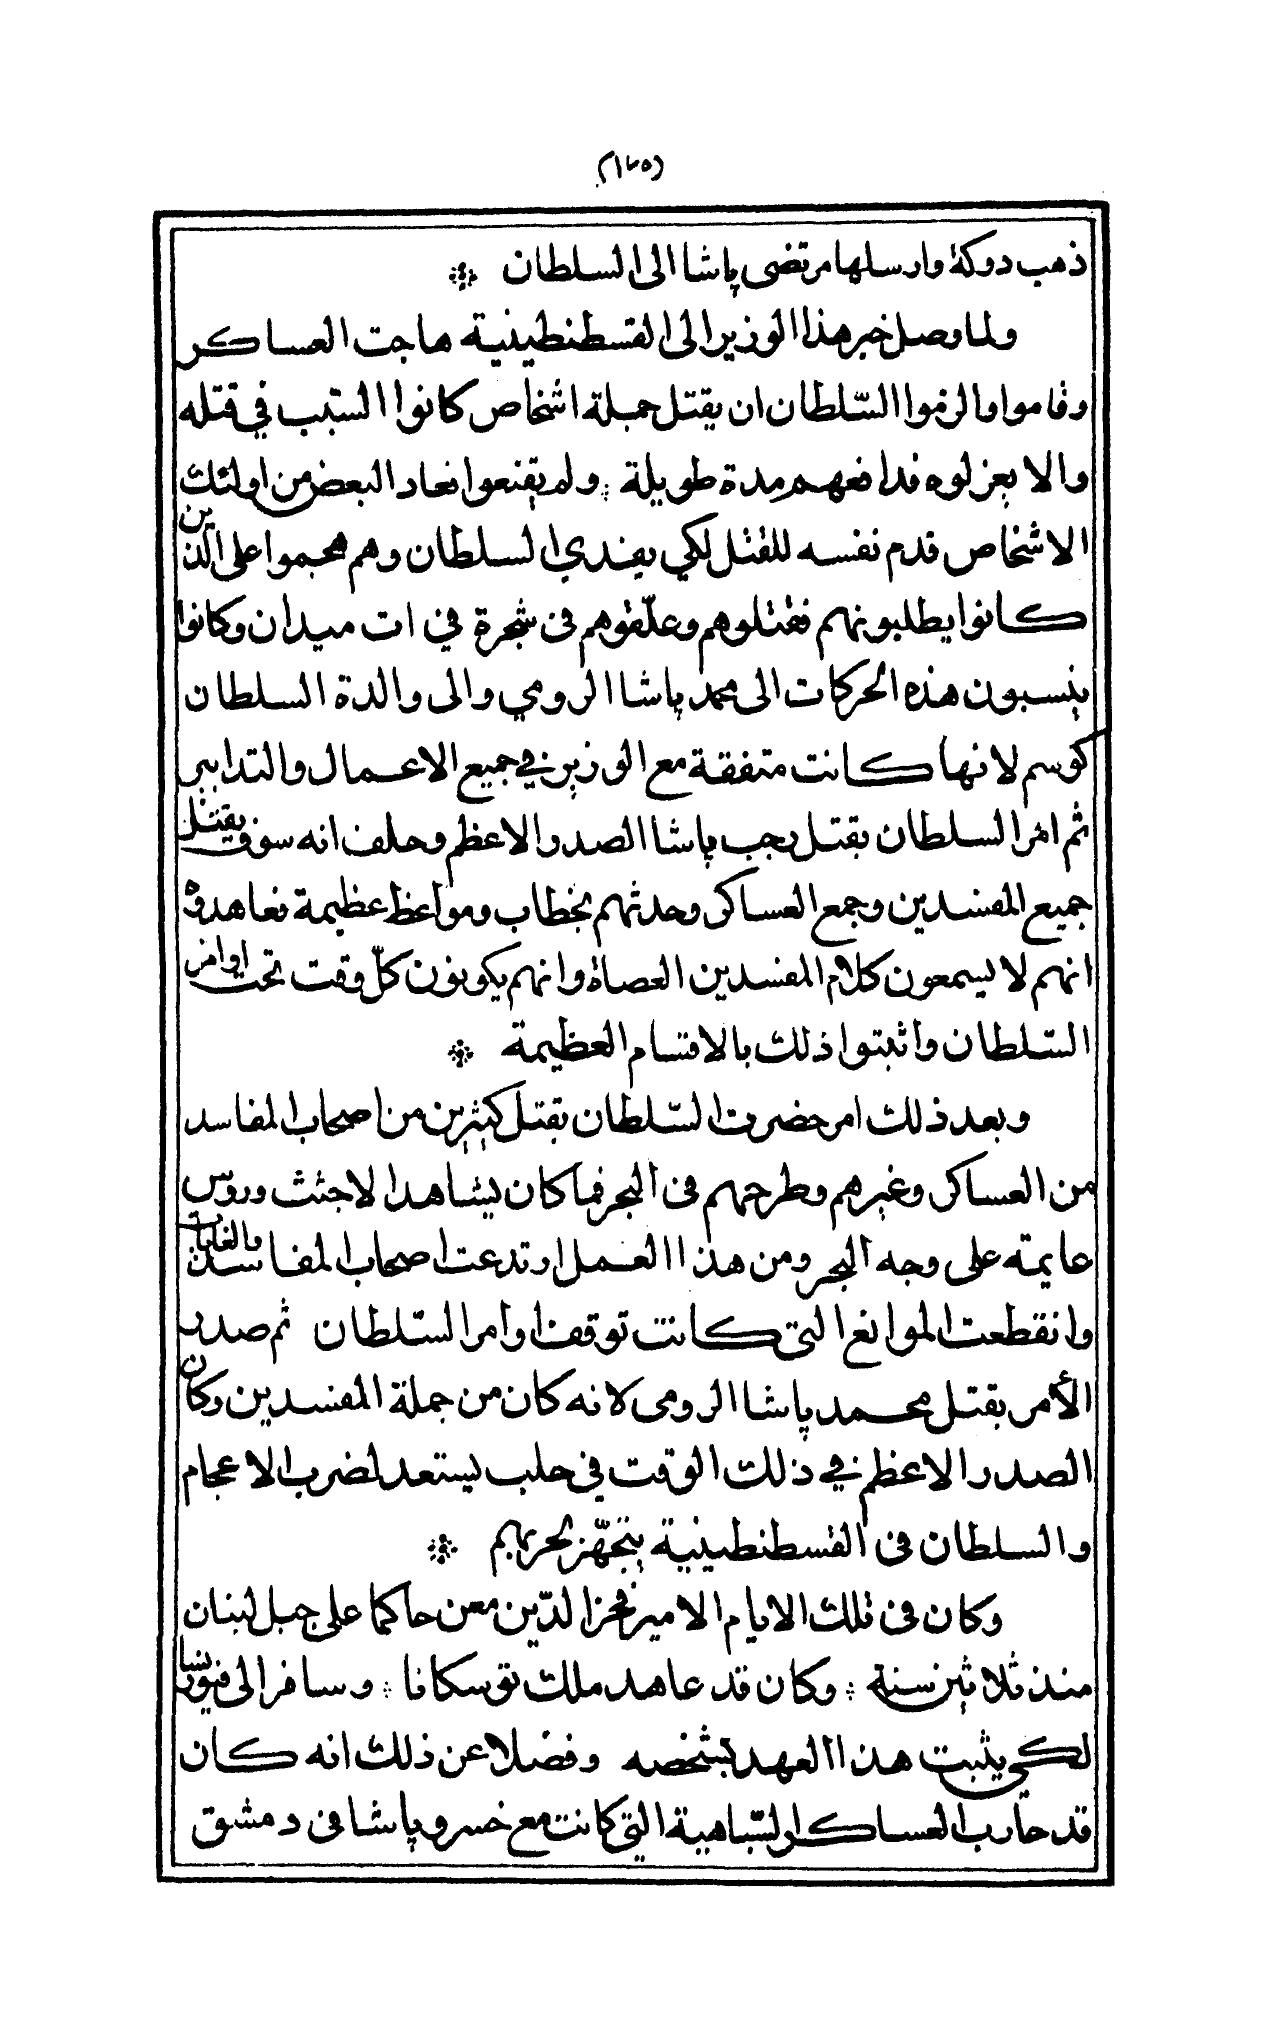 (١٢٥)
ذهب دوكة وارسلها مرتضى پاشا الى السلطان ❊
ولما وصل خبر هذا الوزير الى القسطنطينية هاجت العساكر
وقاموا والزموا السّلطان ان يقتل جملة اشخاص كانوا السّبب في قتله
والا يعزلوه فدافعهم مدة طويلة ؞ ولم يقنعوا فعاد البعض من اولئك
الاشخاص قدم نفسه للقتل لكي يفدي السلطان وهم هجموا على الذين
كانوا يطلبونهم فقتلوهم وعلّقوهم فى شجرة في ات ميدان وكانوا
ينسبون هذه الحركات الى محمد پاشا الرومي والى والدة السلطان
كوسم لانها كانت متفقة مع الوزير في جميع الاعمال والتدابير
ثم امر السلطان بقتل رجب پاشا الصدر الاعظم وحلف انه سوف يقتل
جميع المفسدين وجمع العساكر وحدثهم بخطاب ومواعظ عظيمة فعاهدوه
انهم لا يسمعون كلام المفسدين العصاة وانهم يكونون كلّ وقت تحت اوامر
السّلطان واثبتوا ذلك بالاقسام العظيمة ❊
وبعد ذلك امر حضرت السّلطان بقتل كثيرين من اصحاب المفاسد
من العساكر وغيرهم وطرحهم فى البحر فما كان يشاهد الا جثث وروس
عايمة على وجه البحر ومن هذا العمل ارتدعت اصحاب المفاسد والغايات
وانقطعت الموانع التى كانت توقف اوامر السّلطان ثم صدر
الأمر بقتل محمد پاشا الرومى لانه كان من جملة المفسدين وكان
الصدر الاعظم في ذلك الوقت في حلب يستعد لضرب الاعجام
والسلطان فى القسطنطينية يتجهّز لحربهم ❊
وكان فى تلك الايام الامير فخر الدّين معن حاكما على جبل لبنان
منذ ثلاثين سنة ؞ وكان قد عاهد ملك توسكانا ؞ وسافر الى فيورنسا
لكي يثبت هذا العهد بشخصه وفضلا عن ذلك انه كان
قد حارب العساكر السّباهية التي كانت مع خسرو پاشا فى دمشق